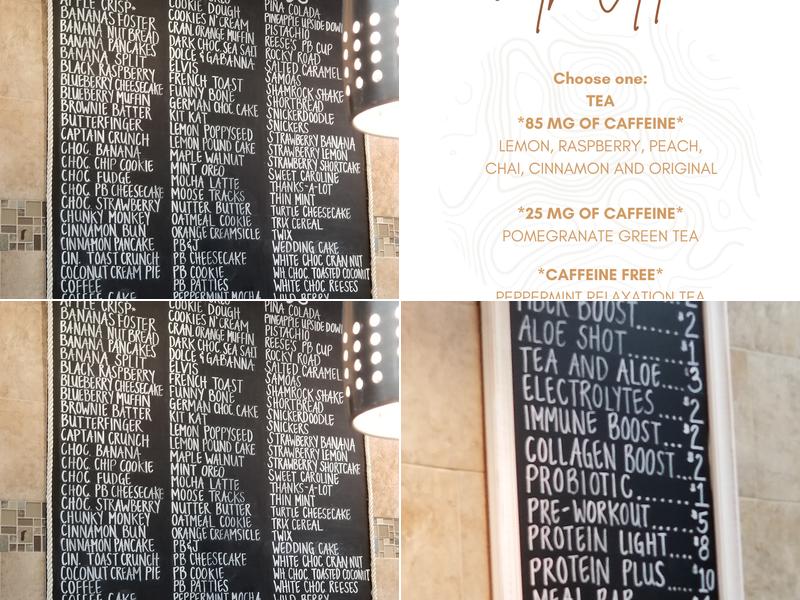 APPLE CRISP
BANANAS FOSTER
BANANA NUT BREAD
BANANA PANCAKES
BANANA SPLIT
BLACK RASPBERRY
BLUEBERRY CHEESECAKE
BLUEBERRY MUFFIN
BROWNIE BATTER
BUTTERFINGER
CAPTAIN CRUNCH
CHOC. BANANA
CHOC CHIP COOKIE
CHOC FUDGE
CHOC PB CHEESECAKE
CHOC. STRAWBERRY
CHUNKY MONKEY
CINNAMON BUN
CINNAMON PANCAKE
CIN. TOAST CRUNCH
COCONUT CREAM PIE
COFFEE
COFFEE CAKE
COOKIE DOUGH
COOKIES N' CREAM
CRAN. ORANGE MUFFIN
DARK CHOC SEA SALT
DOLCE & GABANNA
ELVIS
FRENCH TOAST
FUNNY BONE
GERMAN CHOC CAKE
KIT KAT
LEMON POPPYSEED
LEMON POUND CAKE
MAPLE WALNUT
MINT OREO
MOCHA LATTE
MOOSE TRACKS
NUTTER BUTTER
OATMEAL COOKIE
ORANGE CREAMSICLE
PB&J
PB CHEESECAKE
PB COOKIE
PB PATTIES
PEPPERMINT MOCHA
PINA COLADA
PINEAPPLE UPSIDE DOWN
PISTACHIO
REESE'S PB CUP
ROCKY ROAD
SALTED CARAMEL
SAMOAS
SHAMROCK SHAKE
SHORTBREAD
SNICKERDOODLE
SNICKERS
STRAWBERRY BANANA
STRAWBERRY LEMON
STRAWBERRY SHORTCAKE
SWEET CAROLINE
THANKS-A-LOT
THIN MINT
TURTLE CHEESECAKE
TRIX CEREAL
TWIX
WEDDING CAKE
WHITE CHOC CRAN NUT
WH CHOC TOASTED COCONUT
WHITE CHOC REESES
WILD BERRY
Choose one:
TEA
*85 MG OF CAFFEINE*
LEMON, RASPBERRY, PEACH,
CHAI, CINNAMON AND ORIGINAL
*25 MG OF CAFFEINE*
POMEGRANATE GREEN TEA
*CAFFEINE FREE*
PEPPERMINT RELAXATION TEA
APPLE CRISP
BANANAS FOSTER
BANANA NUT BREAD
BANANA PANCAKES
BANANA SPLIT
BLACK RASPBERRY
BLUEBERRY CHEESECAKE
BLUEBERRY MUFFIN
BROWNIE BATTER
BUTTERFINGER
CAPTAIN CRUNCH
CHOC. BANANA
CHOC CHIP COOKIE
CHOC FUDGE
CHOC PB CHEESECAKE
CHOC. STRAWBERRY
CHUNKY MONKEY
CINNAMON BUN
CINNAMON PANCAKE
CIN. TOAST CRUNCH
COCONUT CREAM PIE
COFFEE
COFFEE CAKE
COOKIE DOUGH
COOKIES N' CREAM
CRAN. ORANGE MUFFIN
DARK CHOC SEA SALT
DOLCE & GABANNA
ELVIS
FRENCH TOAST
FUNNY BONE
GERMAN CHOC CAKE
KIT KAT
LEMON POPPYSEED
LEMON POUND CAKE
MAPLE WALNUT
MINT OREO
MOCHA LATTE
MOOSE TRACKS
NUTTER BUTTER
OATMEAL COOKIE
ORANGE CREAMSICLE
PB&J
PB CHEESECAKE
PB COOKIE
PB PATTIES
PEPPERMINT MOCHA
PINA COLADA
PINEAPPLE UPSIDE DOWN
PISTACHIO
REESE'S PB CUP
ROCKY ROAD
SALTED CARAMEL
SAMOAS
SHAMROCK SHAKE
SHORTBREAD
SNICKERDOODLE
SNICKERS
STRAWBERRY BANANA
STRAWBERRY LEMON
STRAWBERRY SHORTCAKE
SWEET CAROLINE
THANKS-A-LOT
THIN MINT
TURTLE CHEESECAKE
TRIX CEREAL
TWIX
WEDDING CAKE
WHITE CHOC CRAN NUT
WH CHOC TOASTED COCONUT
WHITE CHOC REESES
WILD BERRY
FIBER BOOST......$2
ALOE SHOT.........$1
TEA AND ALOE....$3
ELECTROLYTES....$2
IMMUNE BOOST...$2
COLLAGEN BOOST..$2
PROBIOTIC.........$1
PRE-WORKOUT.....$5
PROTEIN LIGHT....$8
PROTEIN PLUS....$10
MEAL BAR